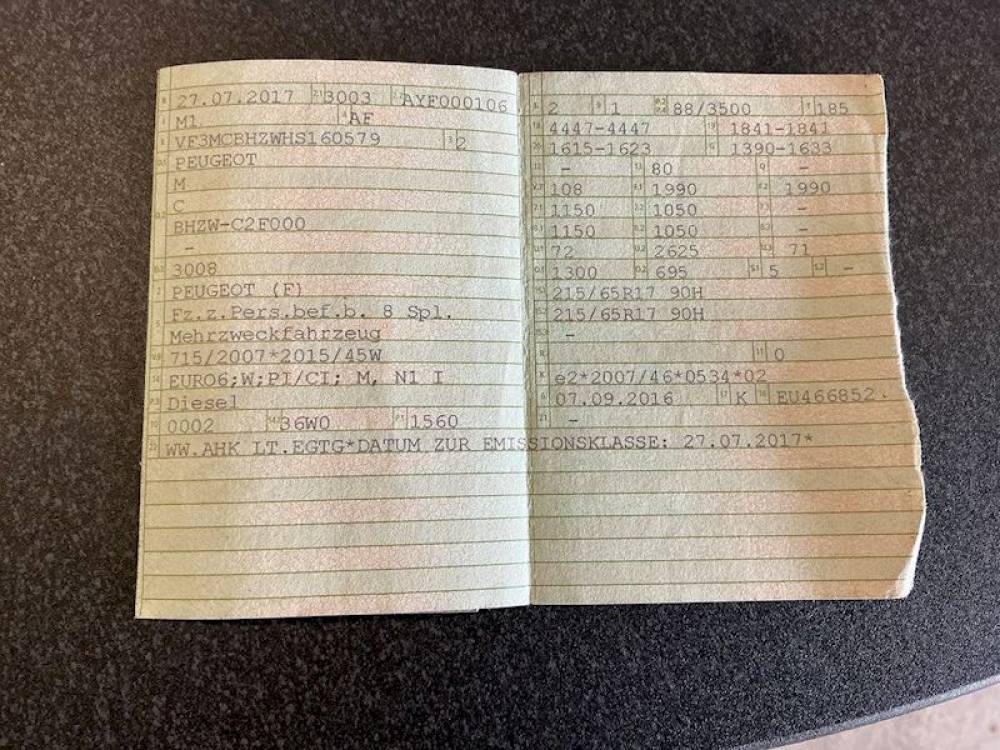 27.07.2017 3003 AYF000106
M1 AF
VF3MCBHZWHS160579 2
PEUGEOT
M
C
BHZW-C2F000
-
3008
PEUGEOT (F)
Fz.z.Pers.bef.b. 8 Spl.
Mehrzweckfahrzeug
715/2007*2015/45W
EURO6;W;PI/CI; M, N1 I
Diesel
0002 36W0 1560
WW.AHK LT.EGTG*DATUM ZUR EMISSIONSKLASSE: 27.07.2017*
2 1 88/3500 185
4447-4447 1841-1841
1615-1623 1390-1633
- 80 -
108 1990 1990
1150 1050 -
1150 1050 -
72 2625 71
1300 695 5 -
215/65R17 90H
215/65R17 90H
-
0
e2*2007/46*0534*02
07.09.2016 K EU466852
-